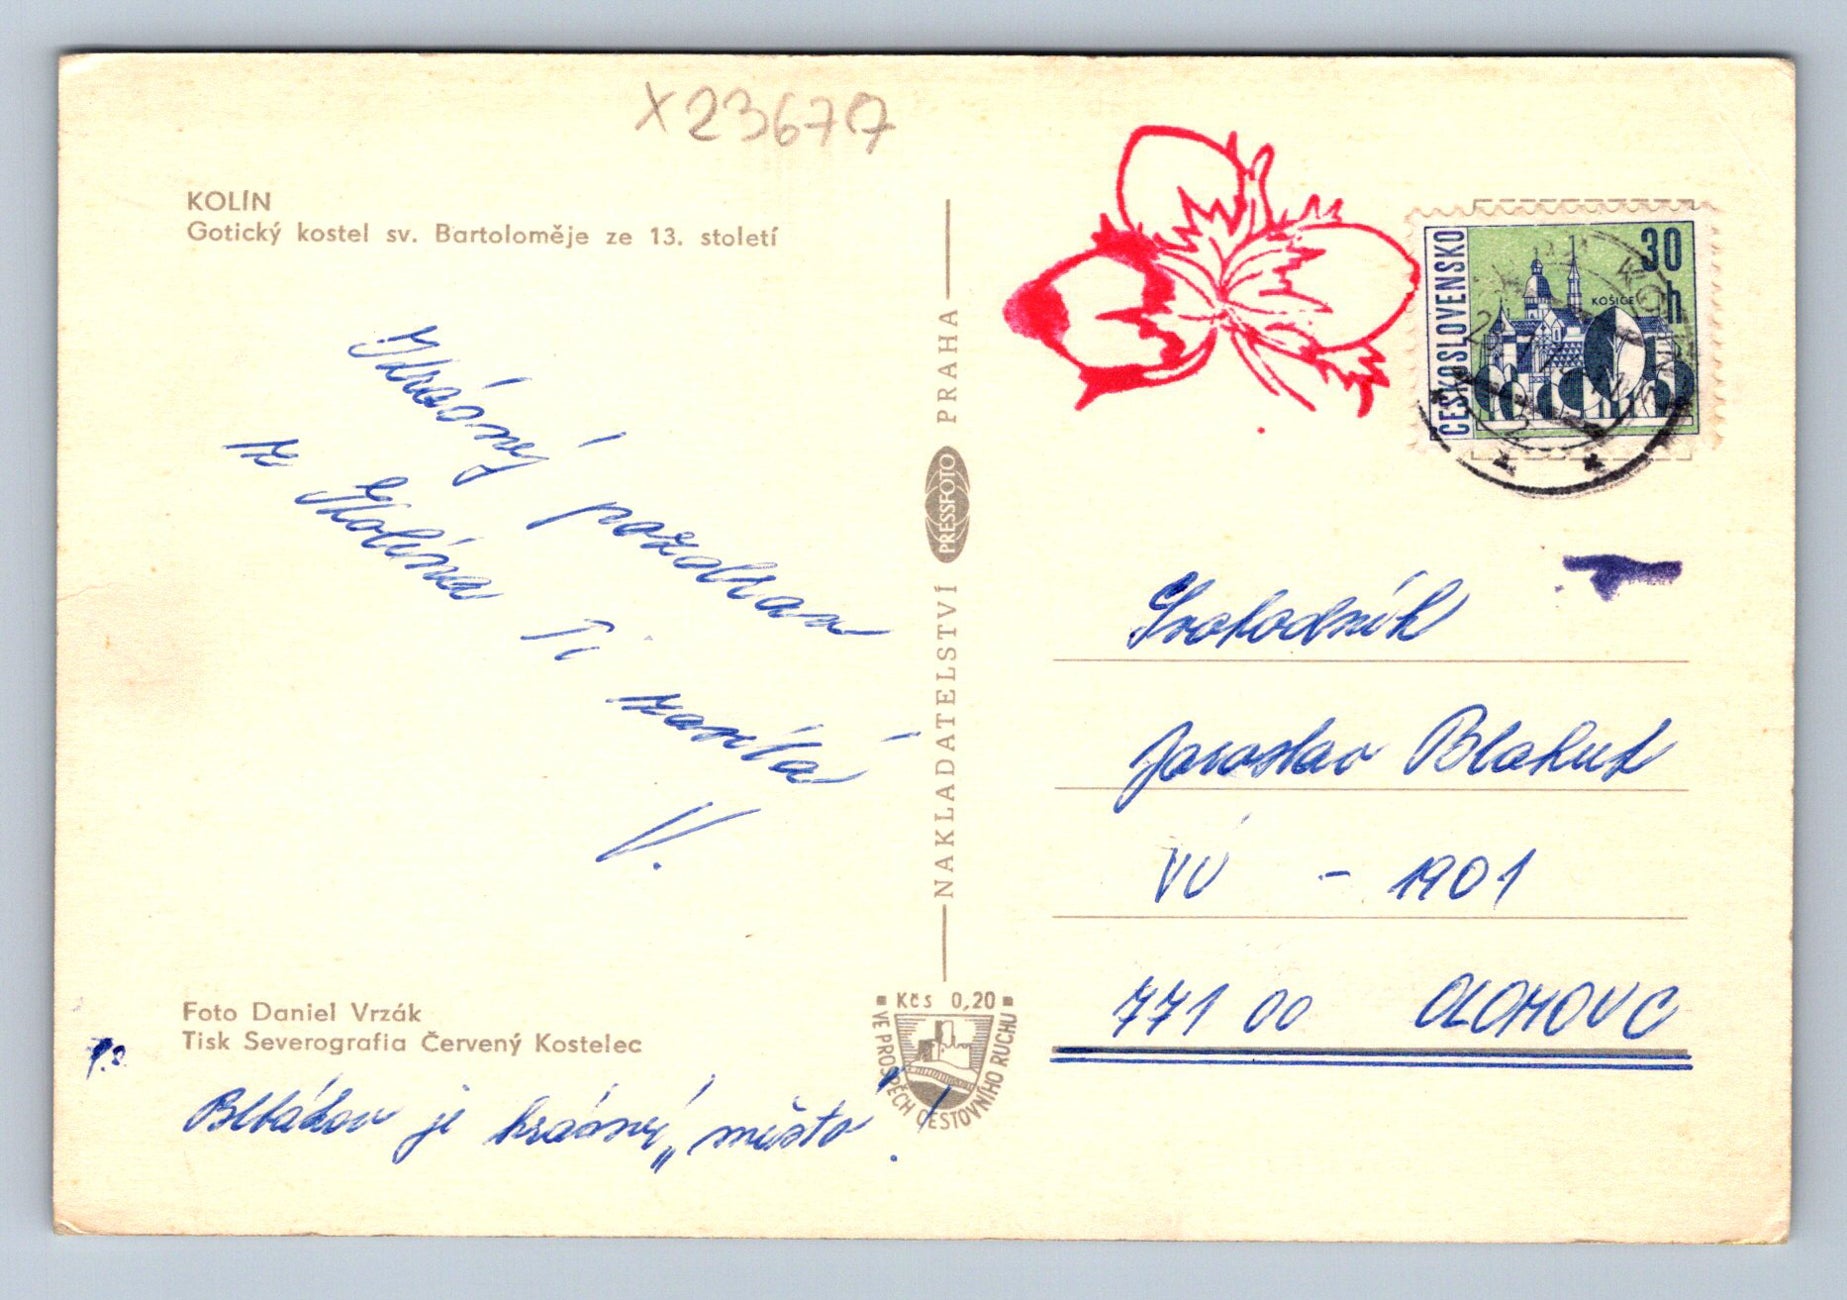 X23677
KOLÍN
Gotický kostel sv. Bartoloměje ze 13. století
Krásný pozdrav
z Kolína Ti
zasílá
V.
Foto Daniel Vrzák
Tisk Severografia Červený Kostelec
P.S.
je krásné „město"!
NAKLADATELSTVÍ PRESSFOTO PRAHA
Kčs 0,20
VE PROSPĚCH CESTOVNÍHO RUCHU
ČESKOSLOVENSKO
30 h
KOŠICE
KOLÍN
Svobodník
Jaroslav Blahut
VÚ - 1901
771 00 OLOMOUC